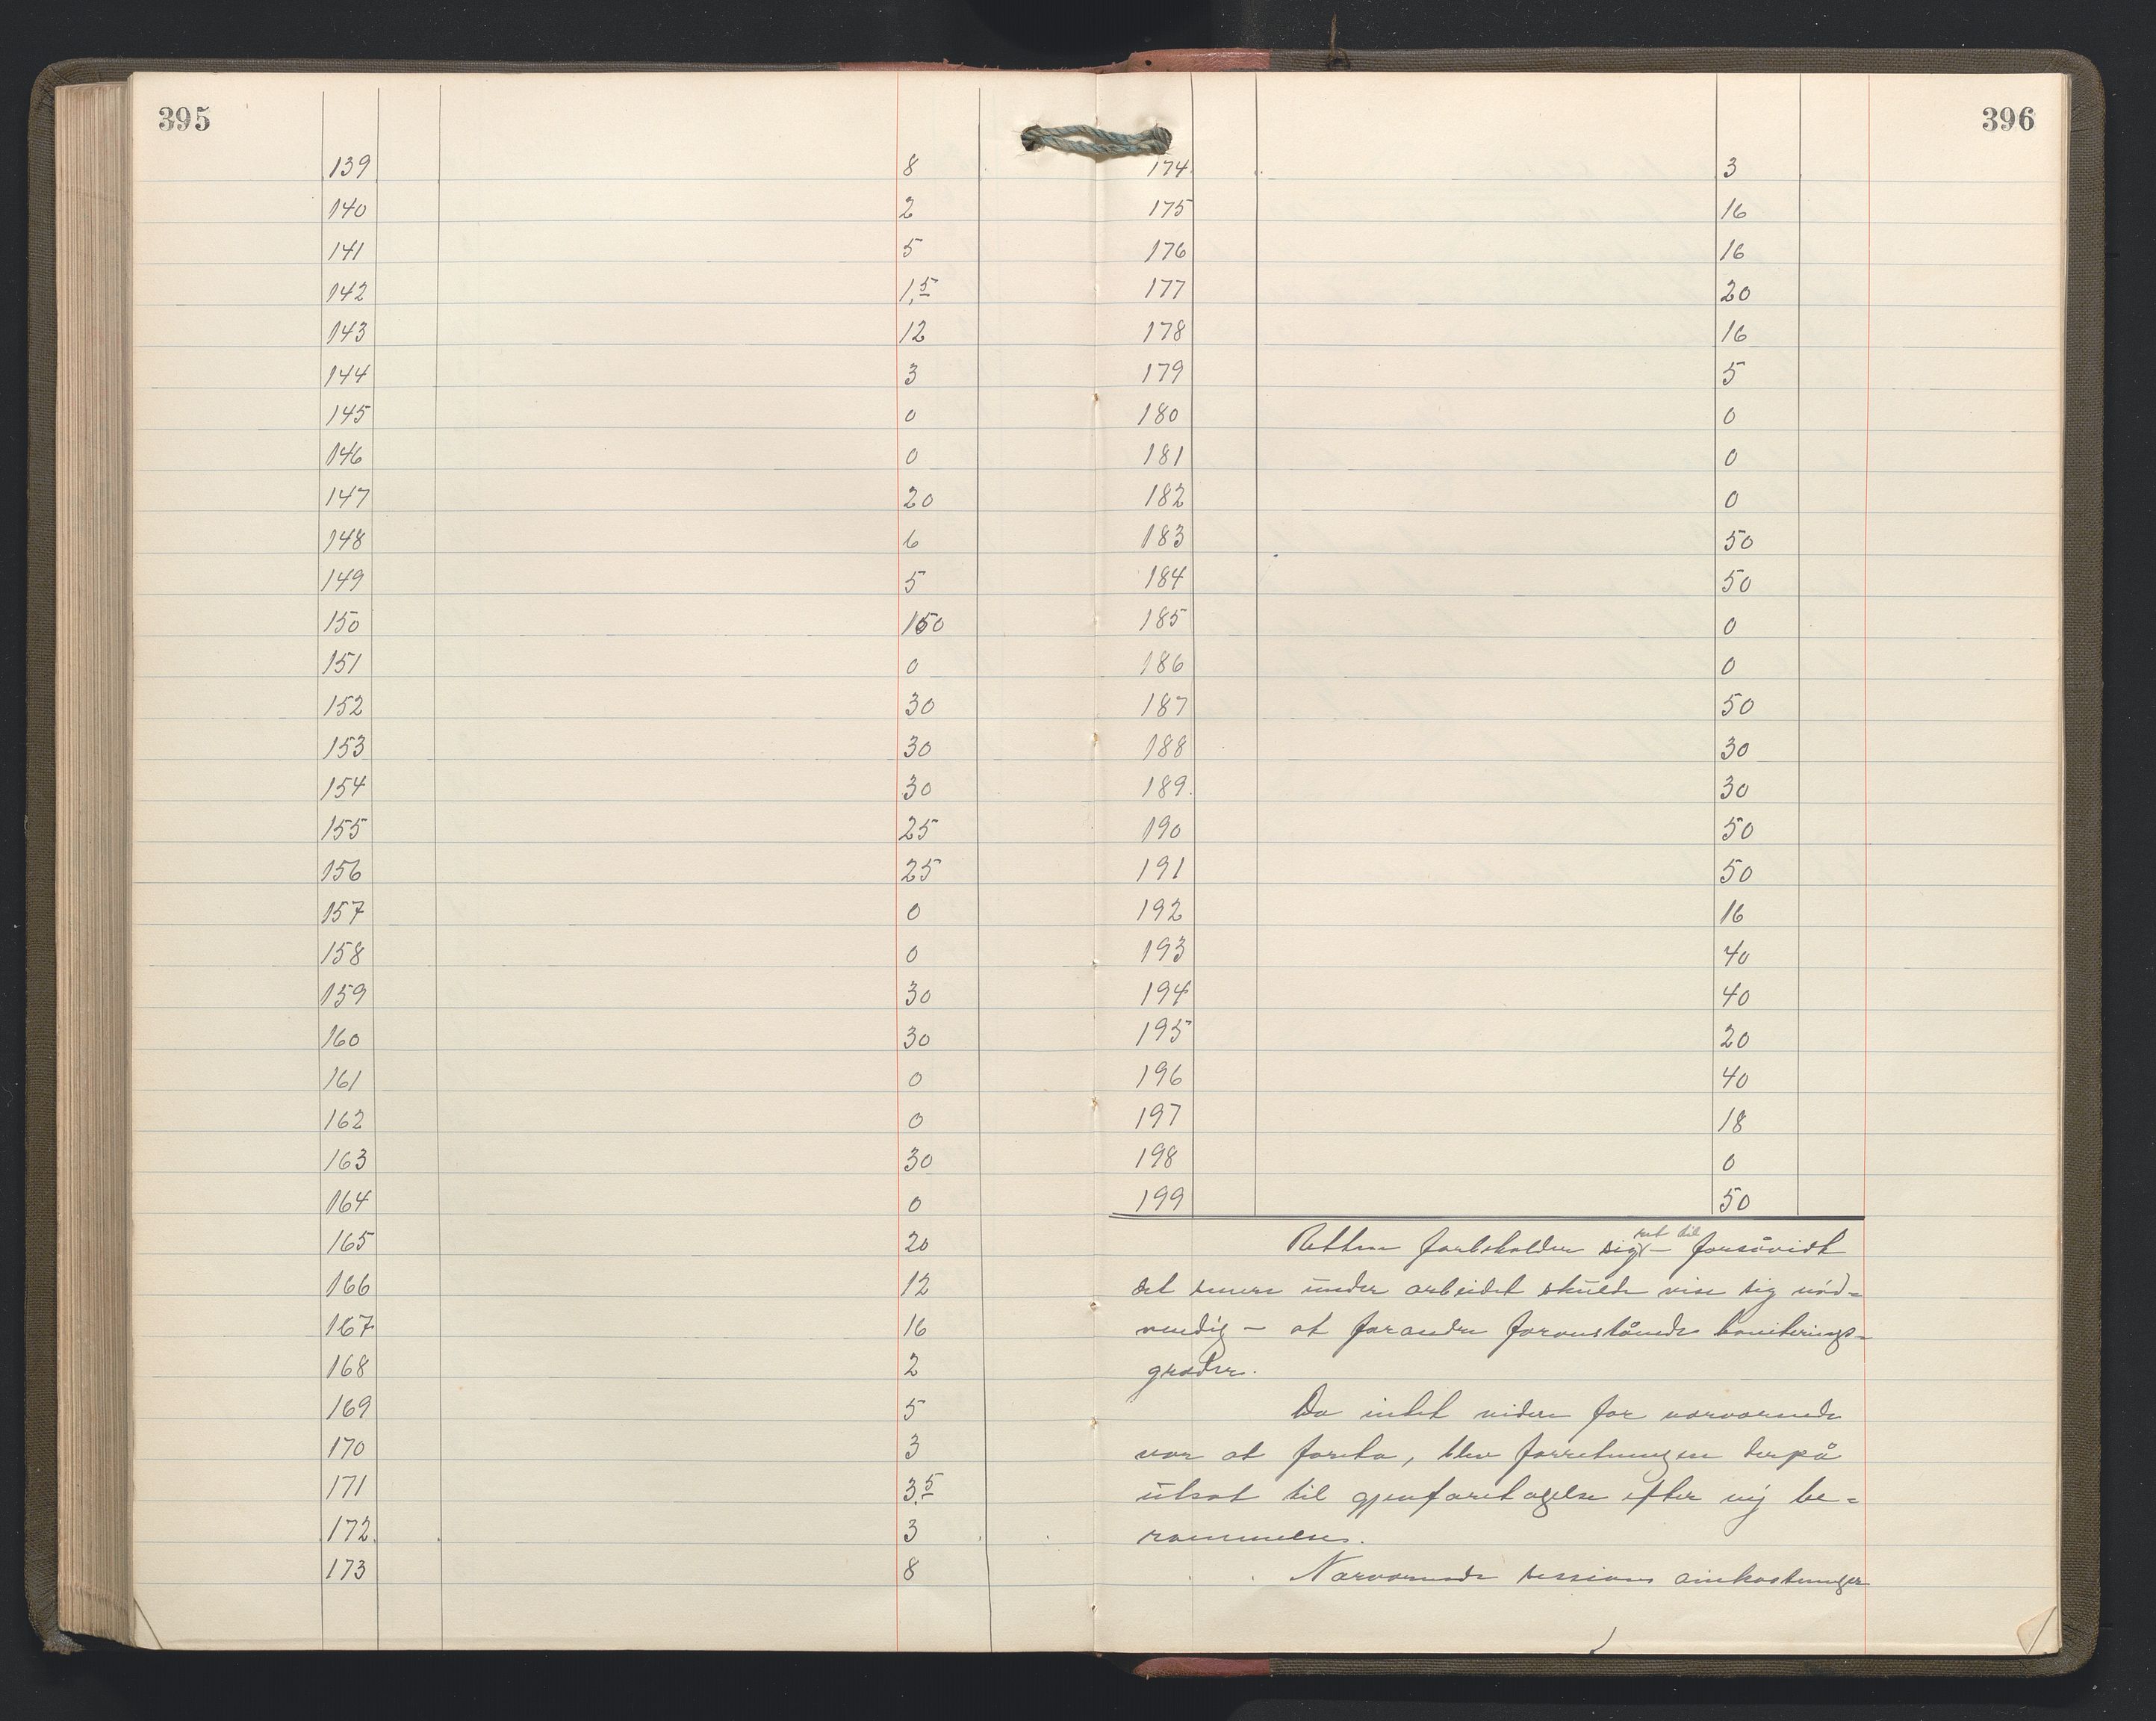 395
139 8
140 2
141 5
142 1,5
143 12
144 3
145 0
146 0
147 20
148 6
149 5
150 150
151 0
152 30
153 30
154 30
155 25
156 25
157 0
158 0
159 30
160 30
161 0
162 0
163 30
164 0
165 20
166 12
167 16
168 2
169 5
170 3
171 3,5
172 3
173 8
396
174 3
175 16
176 16
177 20
178 16
179 5
180 0
181 0
182 0
183 50
184 50
185 0
186 0
187 50
188 30
189 30
190 50
191 50
192 16
193 40
194 40
195 20
196 40
197 18
198 0
199 50
ret til
Retten forbeholder sig – forsåvidt
det senere under arbeidet skulde vise sig nød-
vendig – at forandre foranstående boniterings-
grader.
Da intet videre for nærværende
var at foreta, blev forretningen derpå
utsat til gjenforetagelse efter ny be-
rammelse.
Nærværende sessions omkostninger